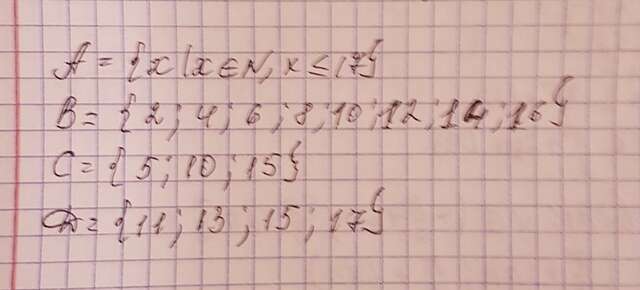 A = {x | x ∈ N, x ≤ 17}
B = {2; 4; 6; 8; 10; 12; 14; 16}
C = {5; 10; 15}
D = {11; 13; 15; 17}